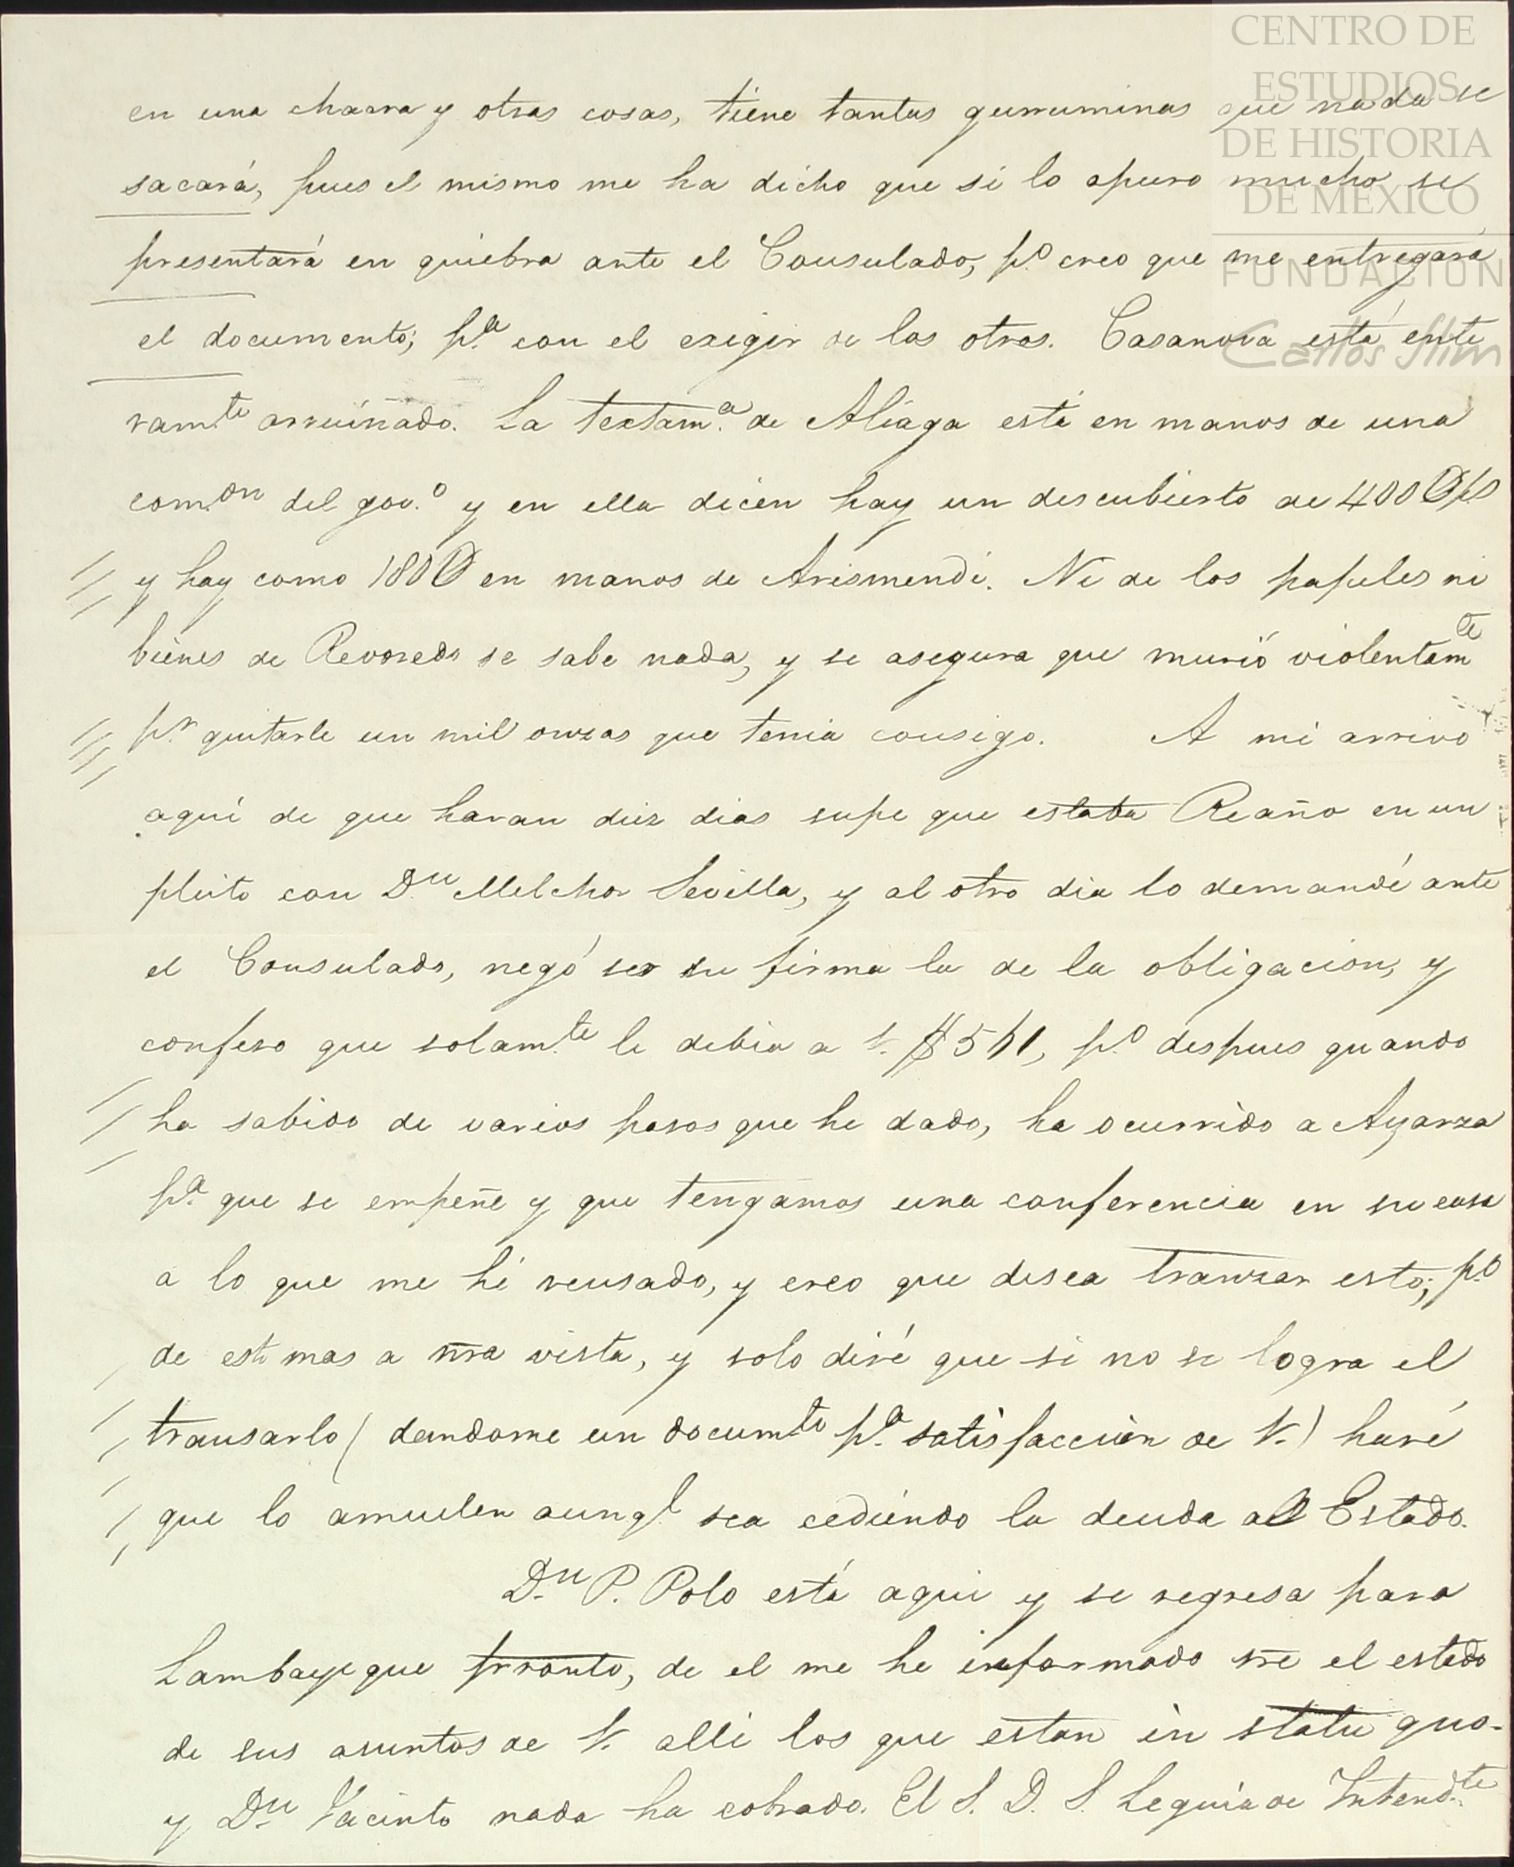 CENTRO DE
ESTUDIOS
DE HISTORIA
DE MÉXICO
FUNDACIÓN
Carlos Slim
en una chacra y otras cosas, tiene tantas gurruminas que nada se
sacará, pues el mismo me ha dicho que si lo apuro mucho se
presentará en quiebra ante el Consulado, p.º creo que me entregará
el documento; p.ª con el exigir de los otros. Casanova está ente
ram.te arruinado. La testam.ª de Aliaga está en manos de una
com.on del gov.º y en ella dicen hay un descubierto de 400 ps
y hay como 180 en manos de Arismendi. Ni de los papeles ni
bienes de Revoredo se sabe nada, y se asegura que murió violentam te
p.r quitarle un mil onzas que tenia consigo. A mi arrivo
aquí de que haran diez dias supe que estaba Reaño en un
pleito con D.n Melchor Sevilla, y al otro dia lo demandé ante
el Consulado, negó ser su firma la de la obligacion, y
confeso que solam.te le debia a V. $ 511, p.º despues quando
ha sabido de varios pasos que he dado, ha ocurrido a Ayarza
p.ª que se empeñe y que tengamos una conferencia en su casa
a lo que me hé reusado, y creo que desea tranzar esto; p.º
de esto mas a nra vista, y solo diré que si no se logra el
transarlo (dandome un docum.to p.ª satisfaccion de V.) haré
que lo amuelen aunq.e sea cediendo la deuda al Estado.
D.n P. Polo está aqui y se regresa para
Lambayeque pronto, de el me he informado sre el estado
de sus asuntos de V. alli los que estan in statu quo.
y D.n Jacinto nada ha cobrado. El S. D. S. Leguia de Intend.te